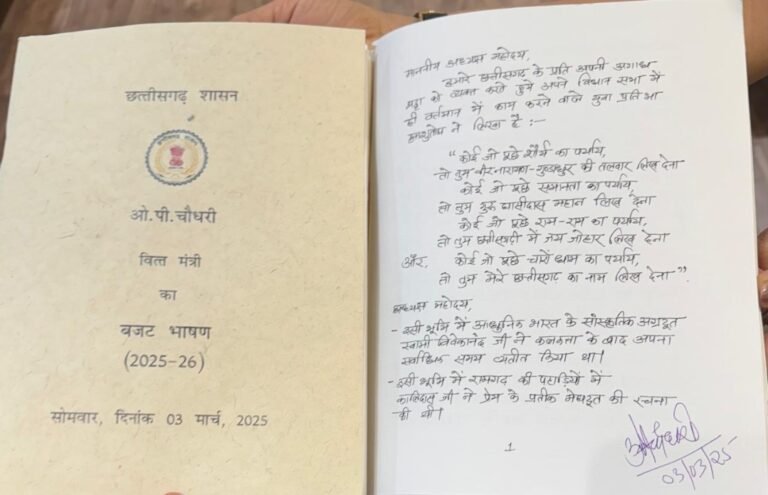 छत्तीसगढ़ शासन
ओ.पी.चौधरी
वित्त मंत्री
का
बजट भाषण
(2025-26)
सोमवार, दिनांक 03 मार्च, 2025
माननीय अध्यक्ष महोदय,
हमारे छत्तीसगढ़ के प्रति अपनी अगाध
श्रद्धा को व्यक्त करते हुये अपने विधान सभा में
ही वर्तमान में काम करने वाले युवा प्रतिभा
ने लिखा है :-
“कोई जो पूछे शौर्य का पर्याय,
तो तुम वीर नारायण-गुण्डाधुर की तलवार लिख देना
कोई जो पूछे समानता का पर्याय,
तो तुम गुरु घासीदास महान लिख देना
कोई जो पूछे राम-राम का पर्याय,
तो तुम छत्तीसगढ़ी में जय जोहार लिख देना
और, कोई जो पूछे चारों धाम का पर्याय,
तो तुम मेरे छत्तीसगढ़ का नाम लिख देना”.
अध्यक्ष महोदय,
- इसी भूमि में आधुनिक भारत के सांस्कृतिक अग्रदूत
स्वामी विवेकानंद जी ने कलकत्ता के बाद अपना
सर्वाधिक समय व्यतीत किया था।
- इसी भूमि में रामगढ़ की पहाड़ियों में
कालिदास जी ने प्रेम के प्रतीक मेघदूत की रचना
की थी।
1
03/03/25